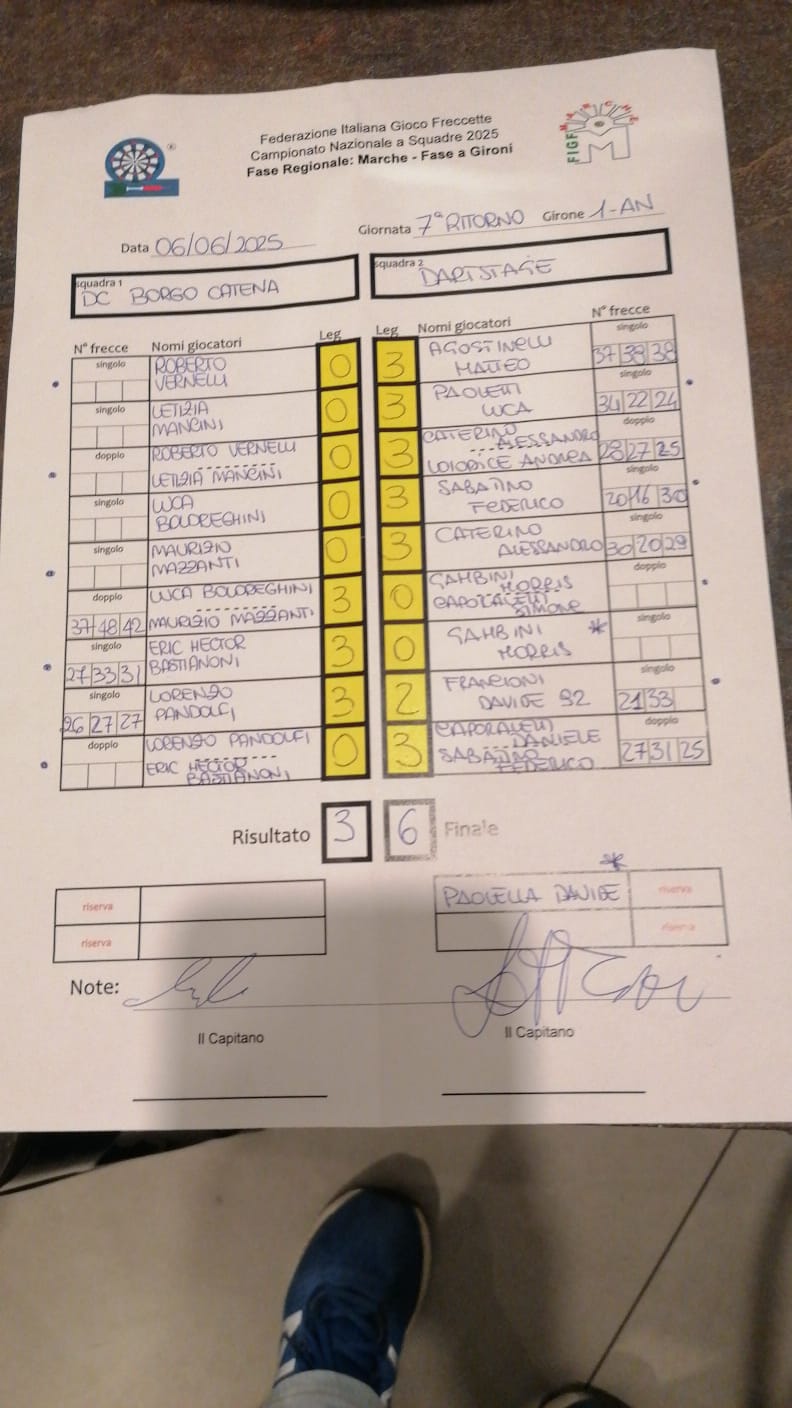 Federazione Italiana Gioco Freccette
Campionato Nazionale a Squadre 2025
Fase Regionale: Marche - Fase a Gironi
FIGF MARCHE
Data 06/06/2025 Giornata 7ª RITORNO Girone 1-AN
squadra 1 squadra 2
DC BORGO CATENA DARTSTAGE
N° frecce Nomi giocatori Leg Leg Nomi giocatori N° frecce
singolo ROBERTO 0 3 AGOSTINELLI singolo
VERNELLI MATTEO 37 38 38
singolo LETIZIA 0 3 PAOLETTI singolo
MANCINI LUCA 34 22 24
doppio ROBERTO VERNELLI 0 3 CATERINO ALESSANDRO doppio
LETIZIA MANCINI LOIODICE ANDREA 28 27 25
singolo LUCA 0 3 SABATINO singolo
BOLDREGHINI FEDERICO 20 16 30
singolo MAURIZIO 0 3 CATERINO singolo
MAZZANTI ALESSANDRO 30 20 29
doppio LUCA BOLDREGHINI 3 0 GAMBINI MORRIS doppio
37 48 42 MAURIZIO MAZZANTI CAPORALETTI SIMONE
singolo ERIC HECTOR 3 0 GAMBINI * singolo
27 33 31 BASTIANONI MORRIS
singolo LORENZO 3 2 FRANCIONI singolo
26 27 27 PANDOLFI DAVIDE 92 21 33
doppio LORENZO PANDOLFI 0 3 CAPORALETTI DANIELE doppio
ERIC HECTOR BASTIANONI SABATINO FEDERICO 27 31 25
Risultato 3 6 Finale
*
riserva PAOLELLA DAVIDE riserva
riserva riserva
Note:
Il Capitano Il Capitano